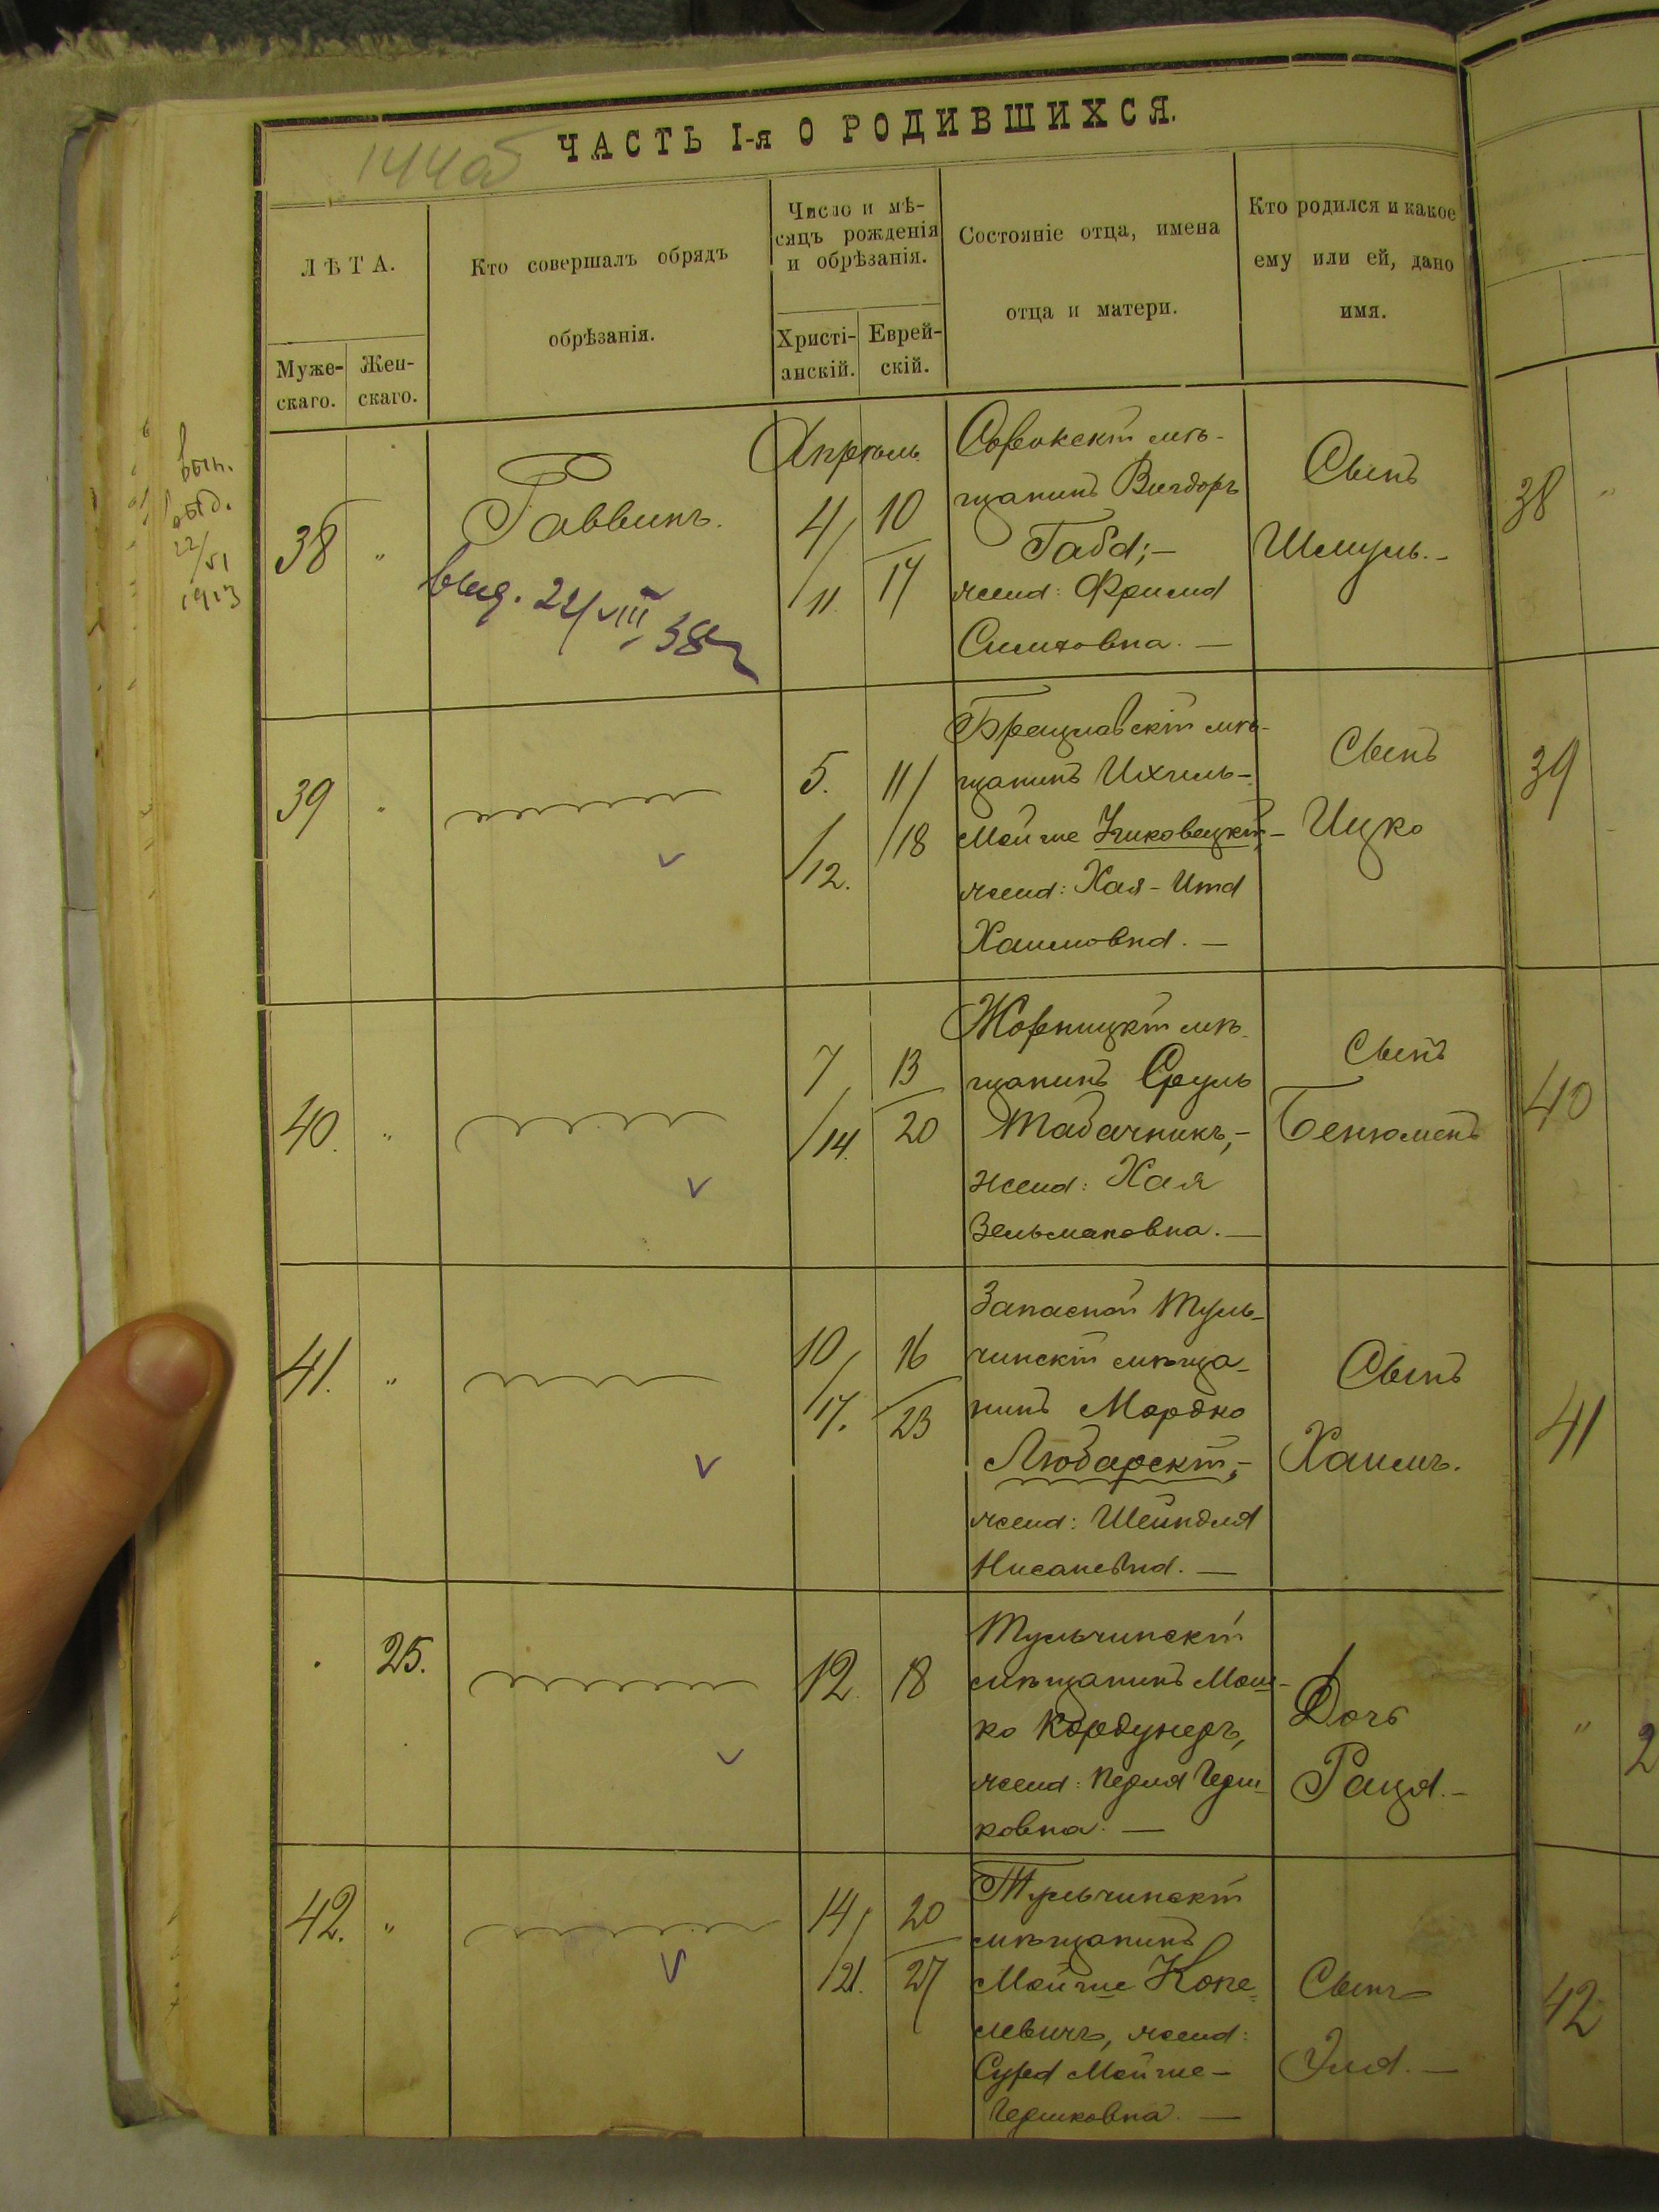 144об
ЧАСТЬ I-я О РОДИВШИХСЯ.
ЛѢТА.
Муже-
скаго.
Жен-
скаго.
Кто совершалъ обрядъ
обрѣзанія.
Число и мѣ-
сяцъ рожденія
и обрѣзанія.
Христі-
анскій.
Еврей-
скій.
Состояніе отца, имена
отца и матери.
Кто родился и какое
ему или ей, дано
имя.
вып.
22/51
1913
38 "
Раввинъ.
выд. 24/VIII, 38 г
Апрѣль
4/11. 10/17
Сорокскій мѣ-
щанинъ Вигдоръ
Габа;-
жена: Фрима
Симховна. —
Сынъ
Шмуль.-
38 "
39 "
5./12. 11/18
Брацлавскій мѣ-
щанинъ Ихиль-
Мойше Ульковецкій,-
жена: Хая-Ита
Хаимовна. —
Сынъ
Ицко
39
40. "
7/14. 13/20
Жорнищкій мѣ-
щанинъ Сруль
Табачникъ,-
жена: Хая
Зельмановна. —
Сынъ
Бенюменъ
40
41. "
10/17. 16/23
Запасной Туль-
чинскій мѣща-
нинъ Мордко
Любарскій,-
жена: Шейндля
Нисановна. —
Сынъ
Хаимъ.
41
25.
12 18
Тульчинскій
мѣщанинъ Мош-
ко Кордунеръ,
жена: Перля Герш-
ковна. —
Дочь
Раця.-
" 2
42. "
14/21. 20/27
Тульчинскій
мѣщанинъ
Мойше Копе-
левичъ, жена:
Сура Мойше-
Гершковна. —
Сынъ
Эля. —
42